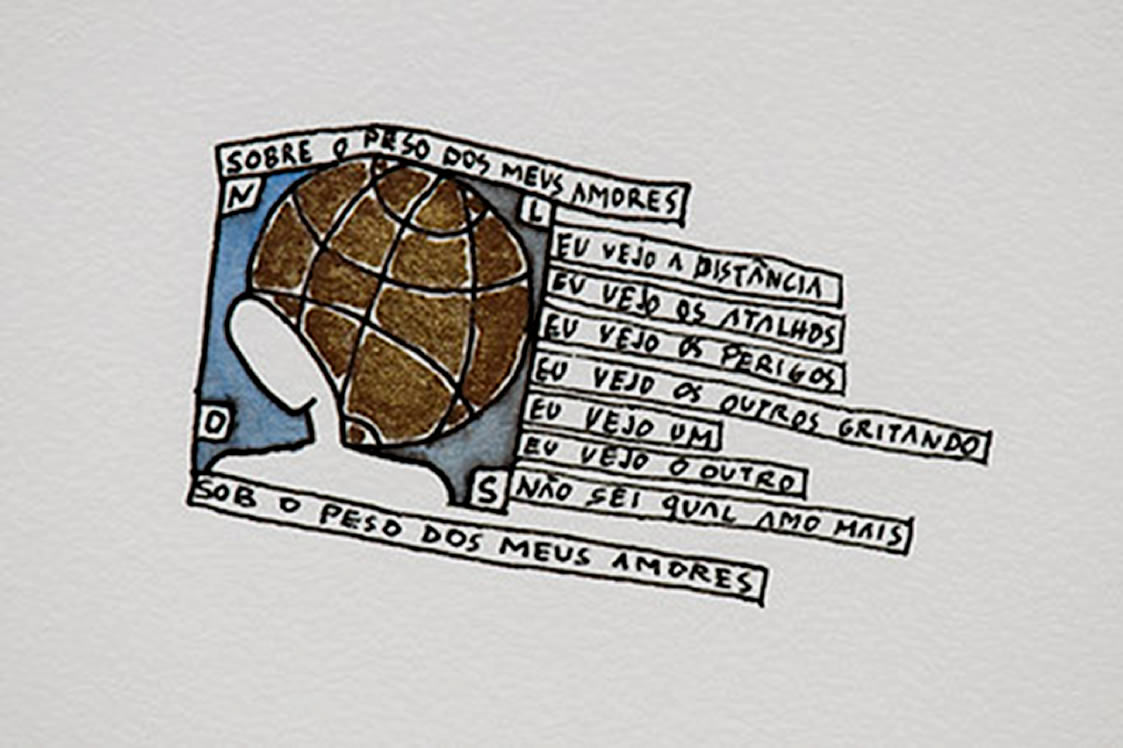 SOBRE O PESO DOS MEUS AMORES
N
L
EU VEJO A DISTÂNCIA
EU VEJO OS ATALHOS
EU VEJO OS PERIGOS
EU VEJO OS OUTROS GRITANDO
EU VEJO UM
EU VEJO O OUTRO
O
S
NÃO SEI QUAL AMO MAIS
SOB O PESO DOS MEUS AMORES